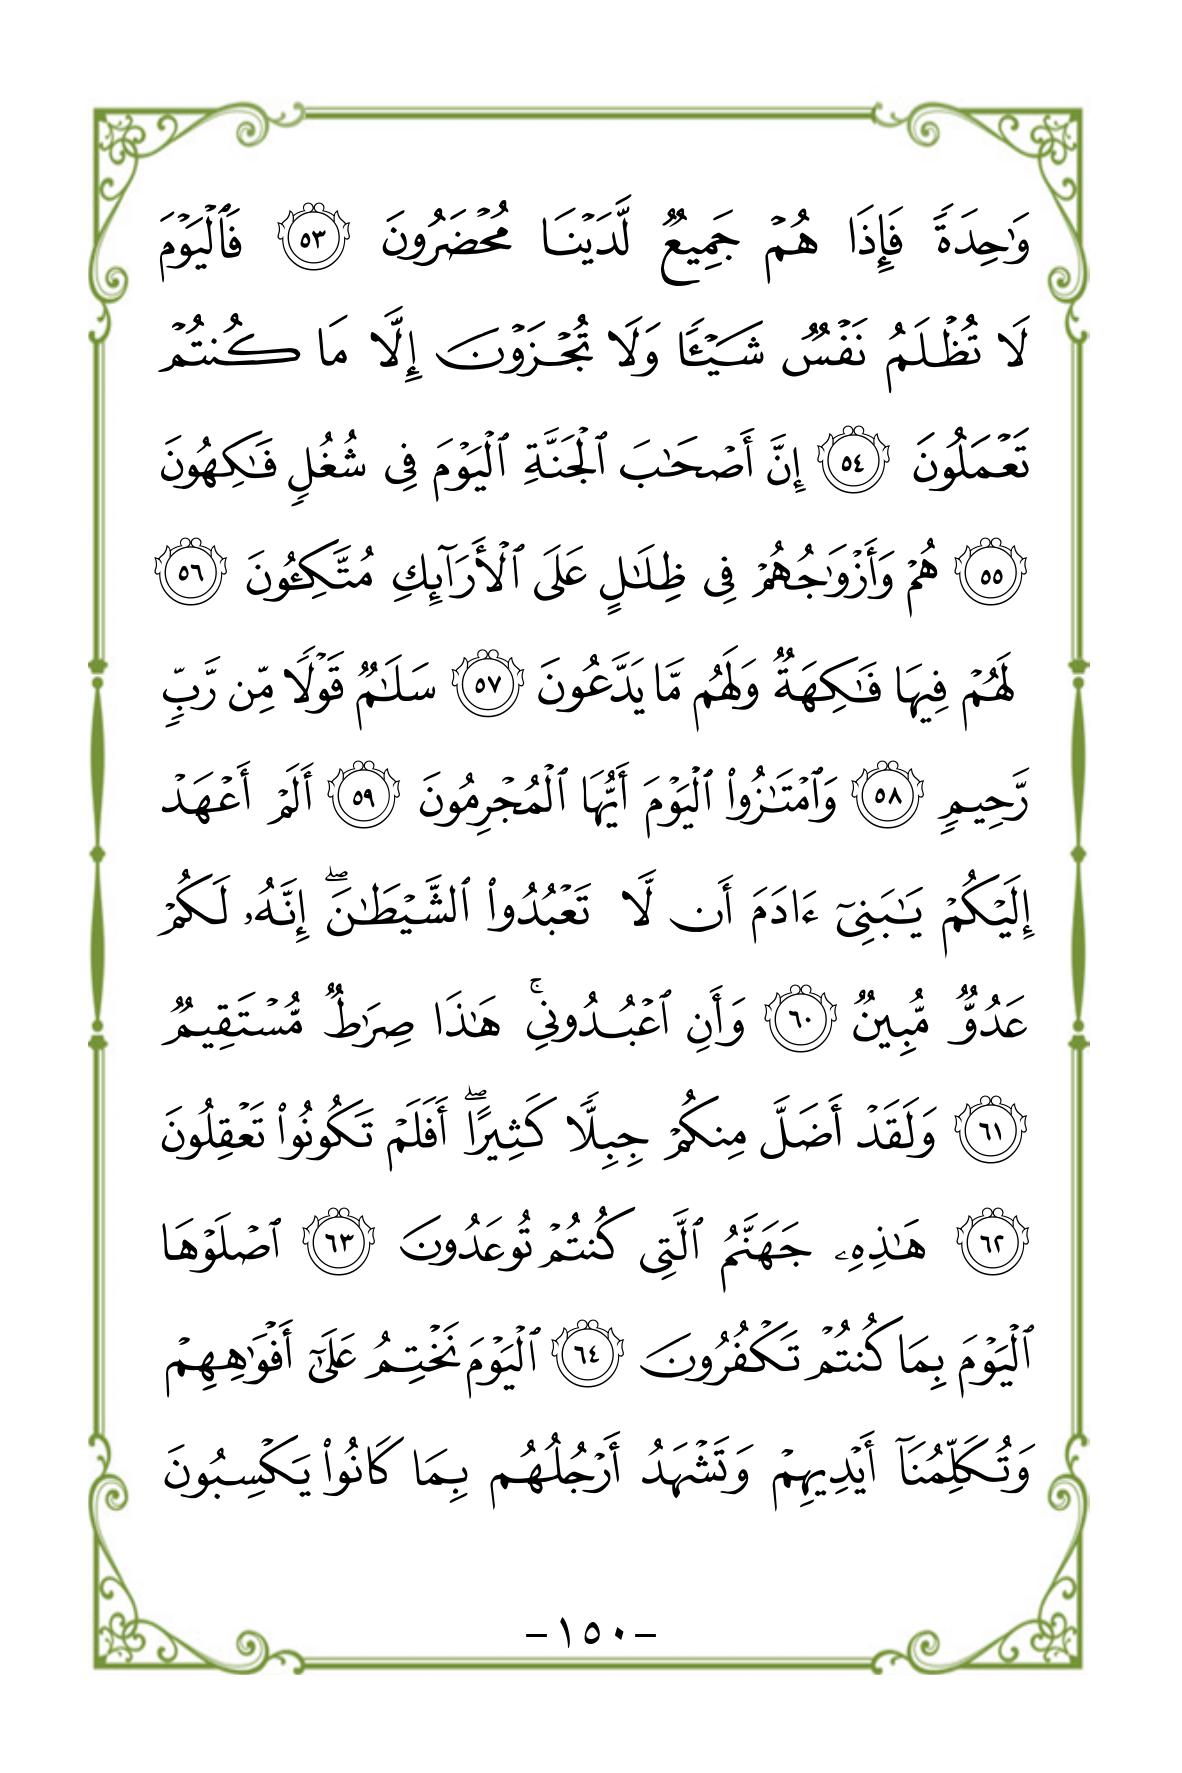 وَٰحِدَةً فَإِذَا هُمۡ جَمِيعٌ لَّدَيۡنَا مُحۡضَرُونَ ٥٣ فَٱلۡيَوۡمَ
لَا تُظۡلَمُ نَفۡسٌ شَيۡـٔٗا وَلَا تُجۡزَوۡنَ إِلَّا مَا كُنتُمۡ
تَعۡمَلُونَ ٥٤ إِنَّ أَصۡحَٰبَ ٱلۡجَنَّةِ ٱلۡيَوۡمَ فِي شُغُلٖ فَٰكِهُونَ
٥٥ هُمۡ وَأَزۡوَٰجُهُمۡ فِي ظِلَٰلٍ عَلَى ٱلۡأَرَآئِكِ مُتَّكِـُٔونَ ٥٦
لَهُمۡ فِيهَا فَٰكِهَةٞ وَلَهُم مَّا يَدَّعُونَ ٥٧ سَلَٰمٞ قَوۡلٗا مِّن رَّبّٖ
رَّحِيمٖ ٥٨ وَٱمۡتَٰزُواْ ٱلۡيَوۡمَ أَيُّهَا ٱلۡمُجۡرِمُونَ ٥٩ أَلَمۡ أَعۡهَدۡ
إِلَيۡكُمۡ يَٰبَنِيٓ ءَادَمَ أَن لَّا تَعۡبُدُواْ ٱلشَّيۡطَٰنَۖ إِنَّهُۥ لَكُمۡ
عَدُوّٞ مُّبِينٞ ٦٠ وَأَنِ ٱعۡبُدُونِيۚ هَٰذَا صِرَٰطٞ مُّسۡتَقِيمٞ
٦١ وَلَقَدۡ أَضَلَّ مِنكُمۡ جِبِلّٗا كَثِيرًاۖ أَفَلَمۡ تَكُونُواْ تَعۡقِلُونَ
٦٢ هَٰذِهِۦ جَهَنَّمُ ٱلَّتِي كُنتُمۡ تُوعَدُونَ ٦٣ ٱصۡلَوۡهَا
ٱلۡيَوۡمَ بِمَا كُنتُمۡ تَكۡفُرُونَ ٦٤ ٱلۡيَوۡمَ نَخۡتِمُ عَلَىٰٓ أَفۡوَٰهِهِمۡ
وَتُكَلِّمُنَآ أَيۡدِيهِمۡ وَتَشۡهَدُ أَرۡجُلُهُم بِمَا كَانُواْ يَكۡسِبُونَ
–١٥٠–